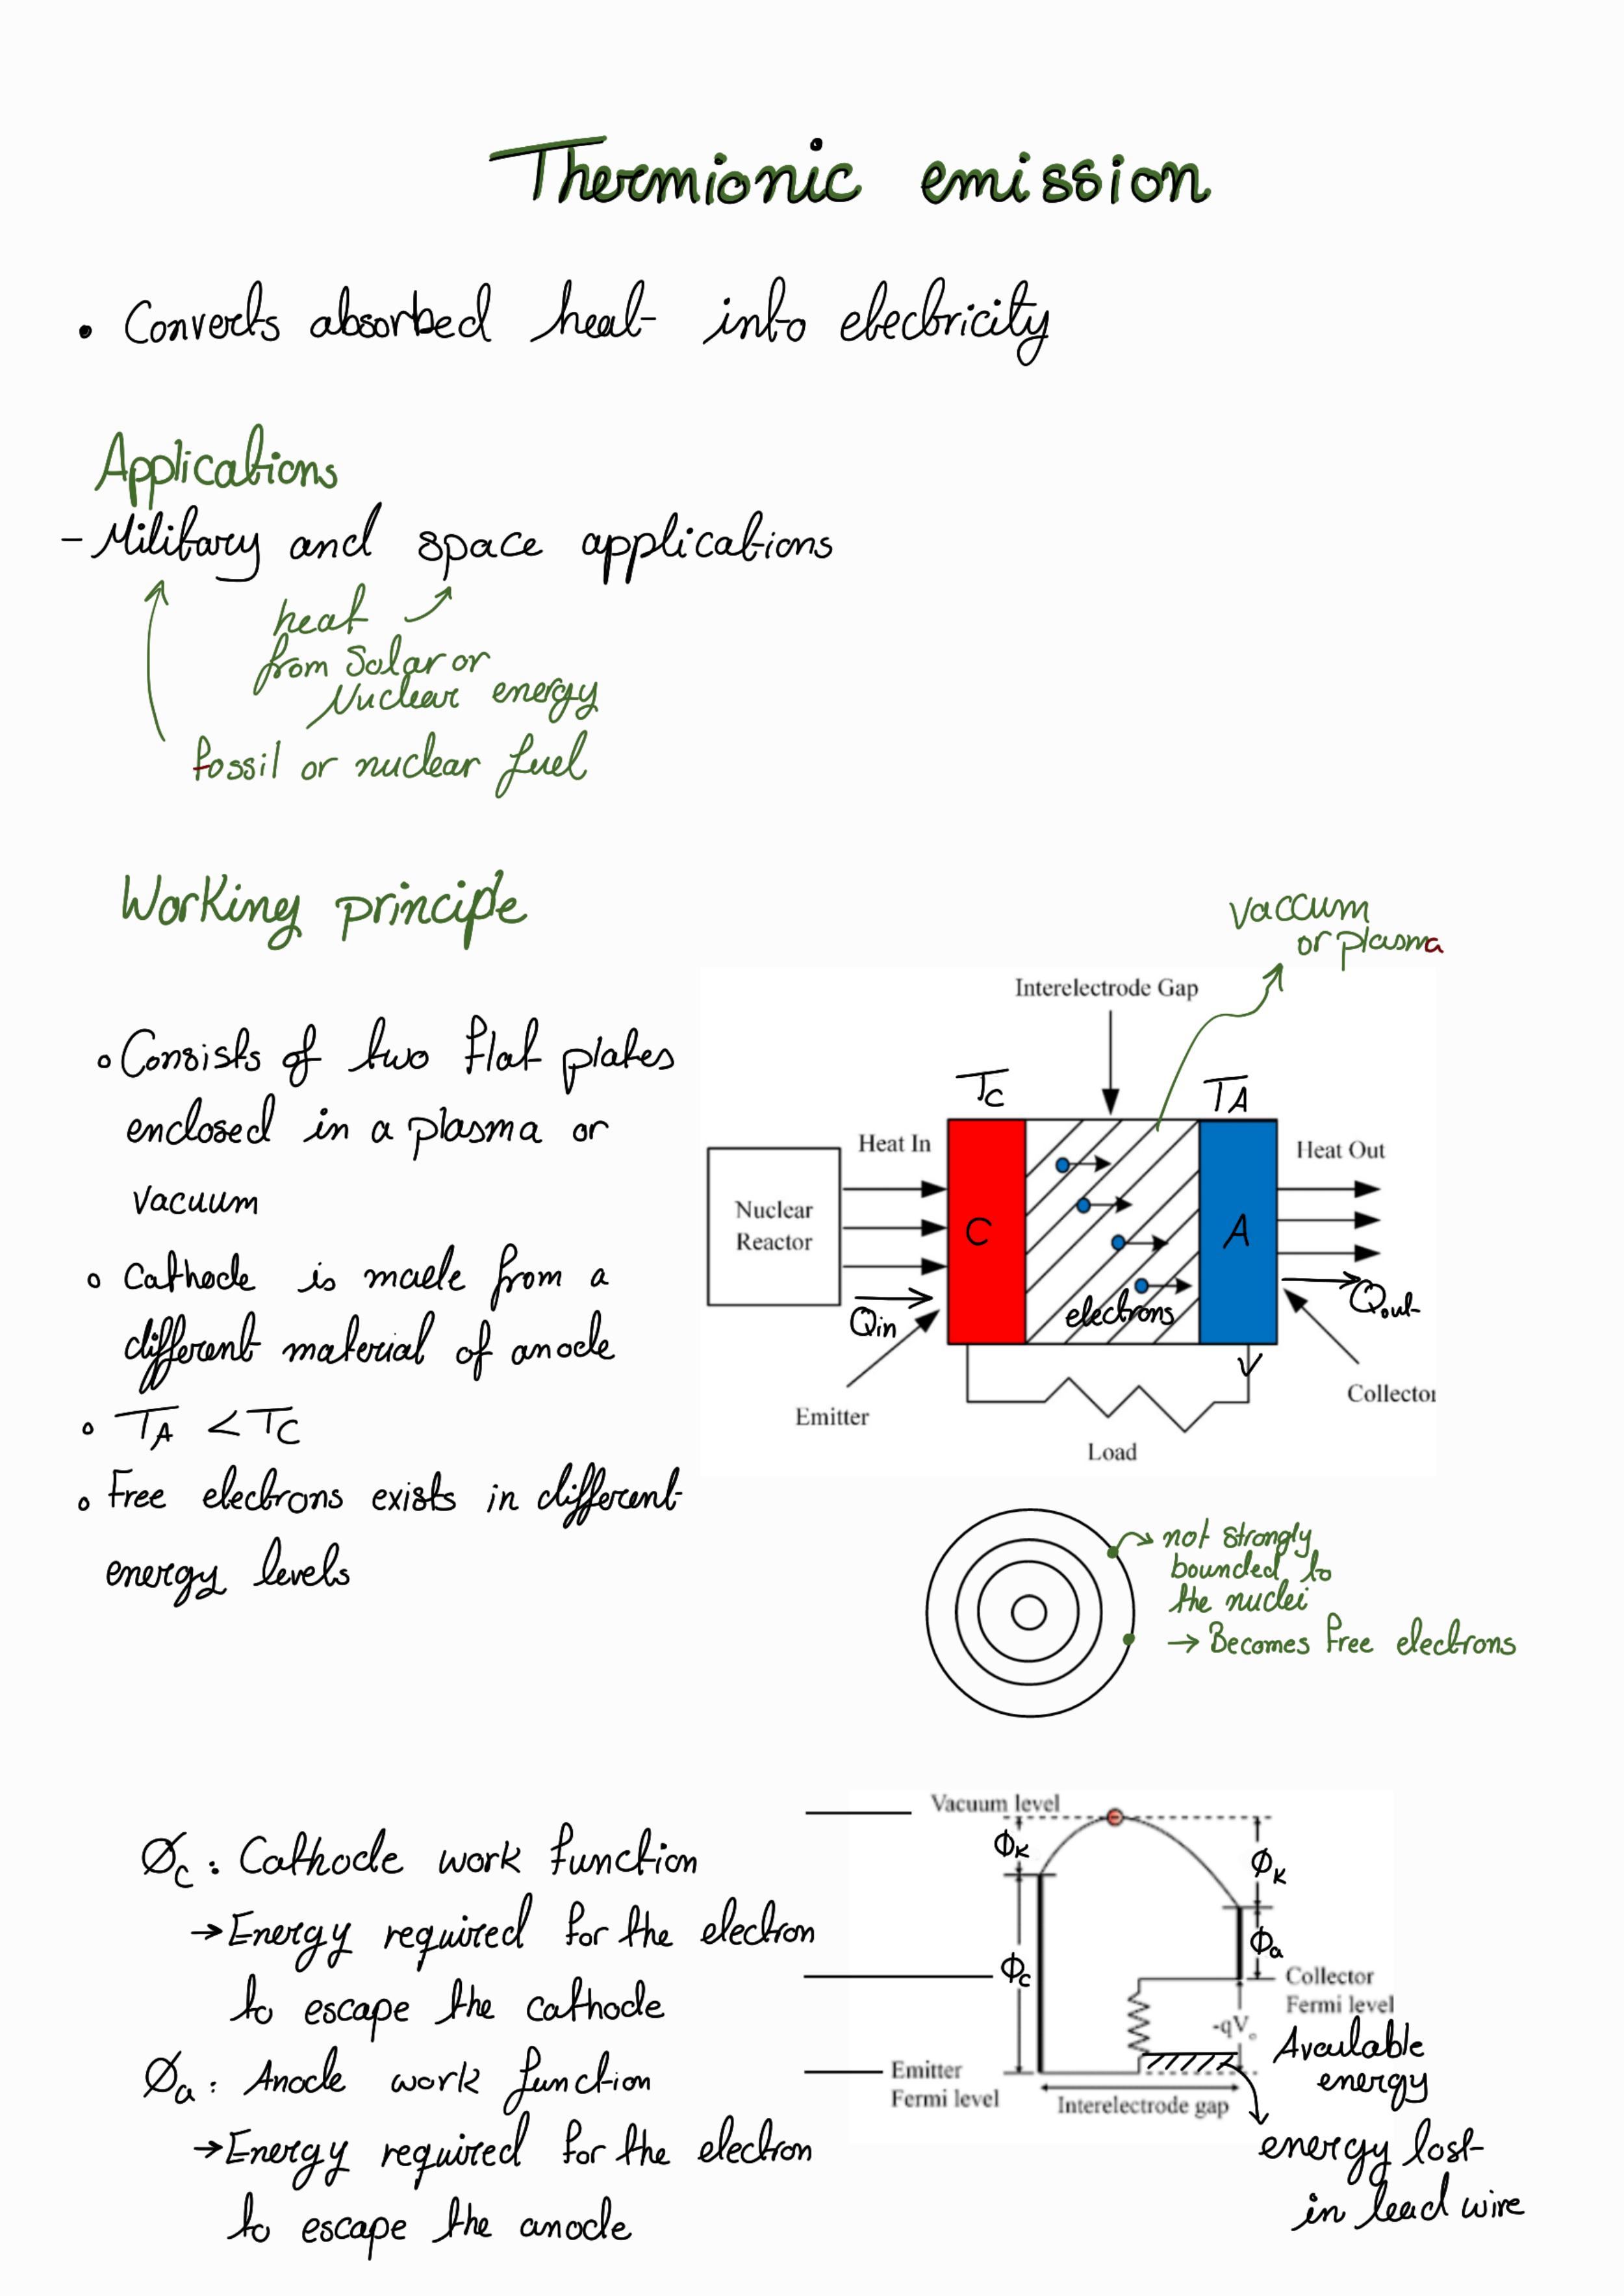 Thermionic emission
• Converts absorbed heat into electricity
Applications
- Military and space applications
heat
from Solar or
Nuclear energy
fossil or nuclear fuel
Working principle
vaccum
or plasma
Interelectrode Gap
∘ Consists of two flat plates
enclosed in a plasma or
vacuum
∘ Cathode is made from a
different material of anode
∘ TA < TC
∘ Free electrons exists in different
energy levels
TC
TA
Heat In
Heat Out
Nuclear
Reactor
C
A
Qin
electrons
Qout
V
Emitter
Collector
Load
not strongly
bounded to
the nuclei
→ Becomes free electrons
Øc : Cathode work function
→ Energy required for the electron
to escape the cathode
Øa : Anode work function
→ Energy required for the electron
to escape the anode
Vacuum level
ϕK
ϕK
ϕc
ϕa
Collector
Fermi level
-qVo
Available
energy
Emitter
Fermi level
Interelectrode gap
energy lost
in lead wire